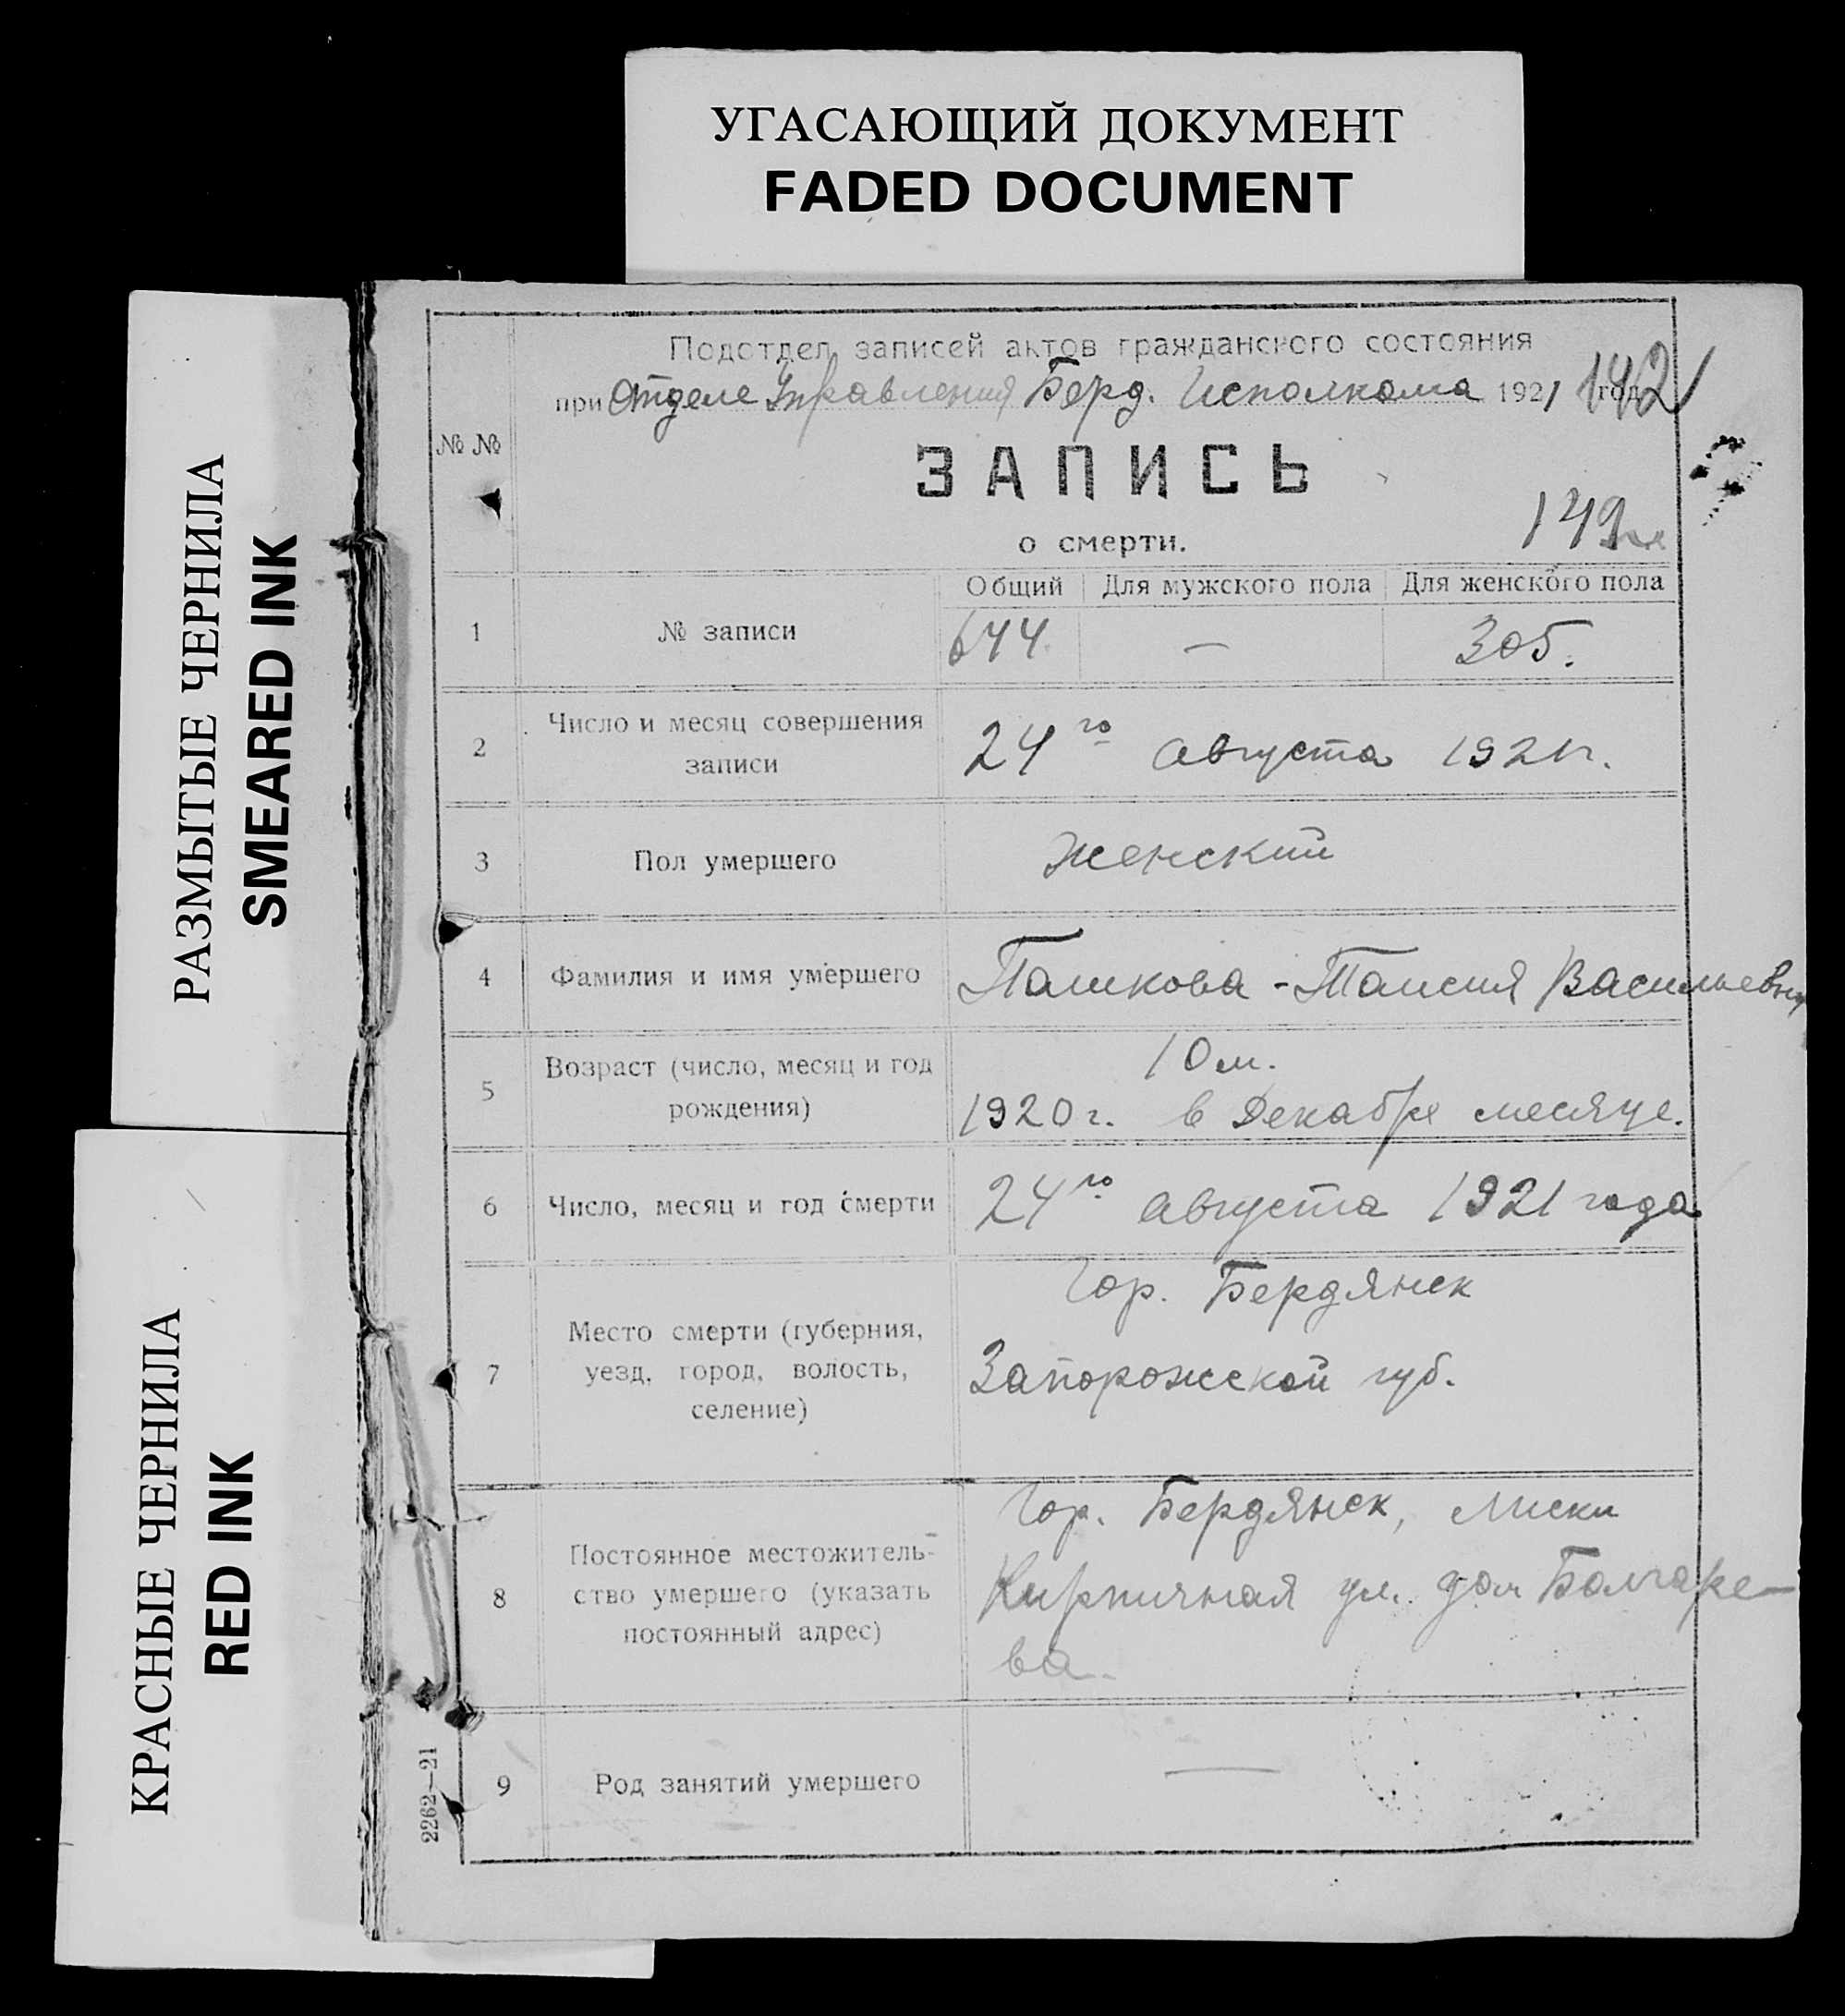 УГАСАЮЩИЙ ДОКУМЕНТ
FADED DOCUMENT
РАЗМЫТЫЕ ЧЕРНИЛА
SMEARED INK
КРАСНЫЕ ЧЕРНИЛА
RED INK
Подотдел записей актов гражданского состояния
при Отделе Управления Берд. Исполкома 1921 год
142
№ №
ЗАПИСЬ
о смерти.
149
Общий Для мужского пола Для женского пола
1 № записи 644. — 305.
2 Число и месяц совершения
записи
24го августа 1921г.
3 Пол умершего женский
4 Фамилия и имя умершего Пашкова - Таисия Васильевна
5 Возраст (число, месяц и год
рождения)
10 м.
1920 г. в Декабре месяце.
6 Число, месяц и год смерти 24го августа 1921 года
7 Место смерти (губерния,
уезд, город, волость,
селение)
Гор. Бердянск
Запорожской губ.
8 Постоянное местожитель-
ство умершего (указать
постоянный адрес)
Гор. Бердянск, Лиски
Кирпичная ул. дом Болгаре-
ва.
9 Род занятий умершего —
2262—21